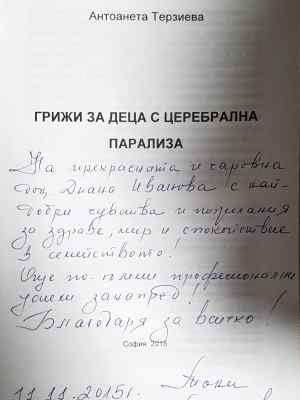 Антоанета Терзиева
ГРИЖИ ЗА ДЕЦА С ЦЕРЕБРАЛНА
ПАРАЛИЗА
На прекрасната и чаровна
доц. Диана Иванова с най-
добри чувства и пожелания
за здраве, мир и спокойствие
в семейството!
Още по-големи професионални
успехи занапред!
Благодаря за всичко!
София 2015
11.11.2015г. Тони